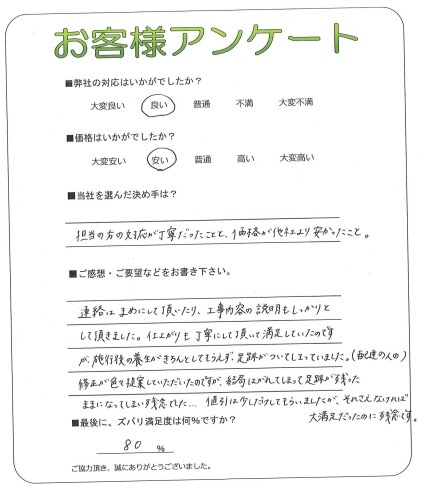 お客様アンケート
■弊社の対応はいかがでしたか?
大変良い 良い 普通 不満 大変不満
■価格はいかがでしたか?
大変安い 安い 普通 高い 大変高い
■当社を選んだ決め手は?
担当の方の対応が丁寧だったことと、価格が他社より安かったこと。
■ご感想・ご要望などをお書き下さい。
連絡はまめにして頂いたり、工事内容の説明もしっかりと
して頂きました。仕上がりも丁寧にして頂いて満足していたのです
が、施行後の養生がきちんとしてもらえず、足跡がついてしまっていました。(配達の人の)
修正が色々提案していただいたのですが、結局はがれてしまって足跡が残った
ままになってしまい残念でした… 値引は少しだけしてもらいましたが、それさえなければ
大満足だったのに残念です。
■最後に、ズバリ満足度は何%ですか?
80 %
ご協力頂き、誠にありがとうございました。